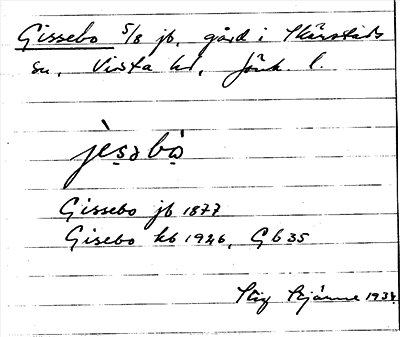 Gissebo 5/8 jb, gård i Skärstads
sn, Vista hd, Jönk. l.
jèsəbò
Gissebo jb 1877
Gisebo kb 1926, Gb 35
Stig Bjärme 1934